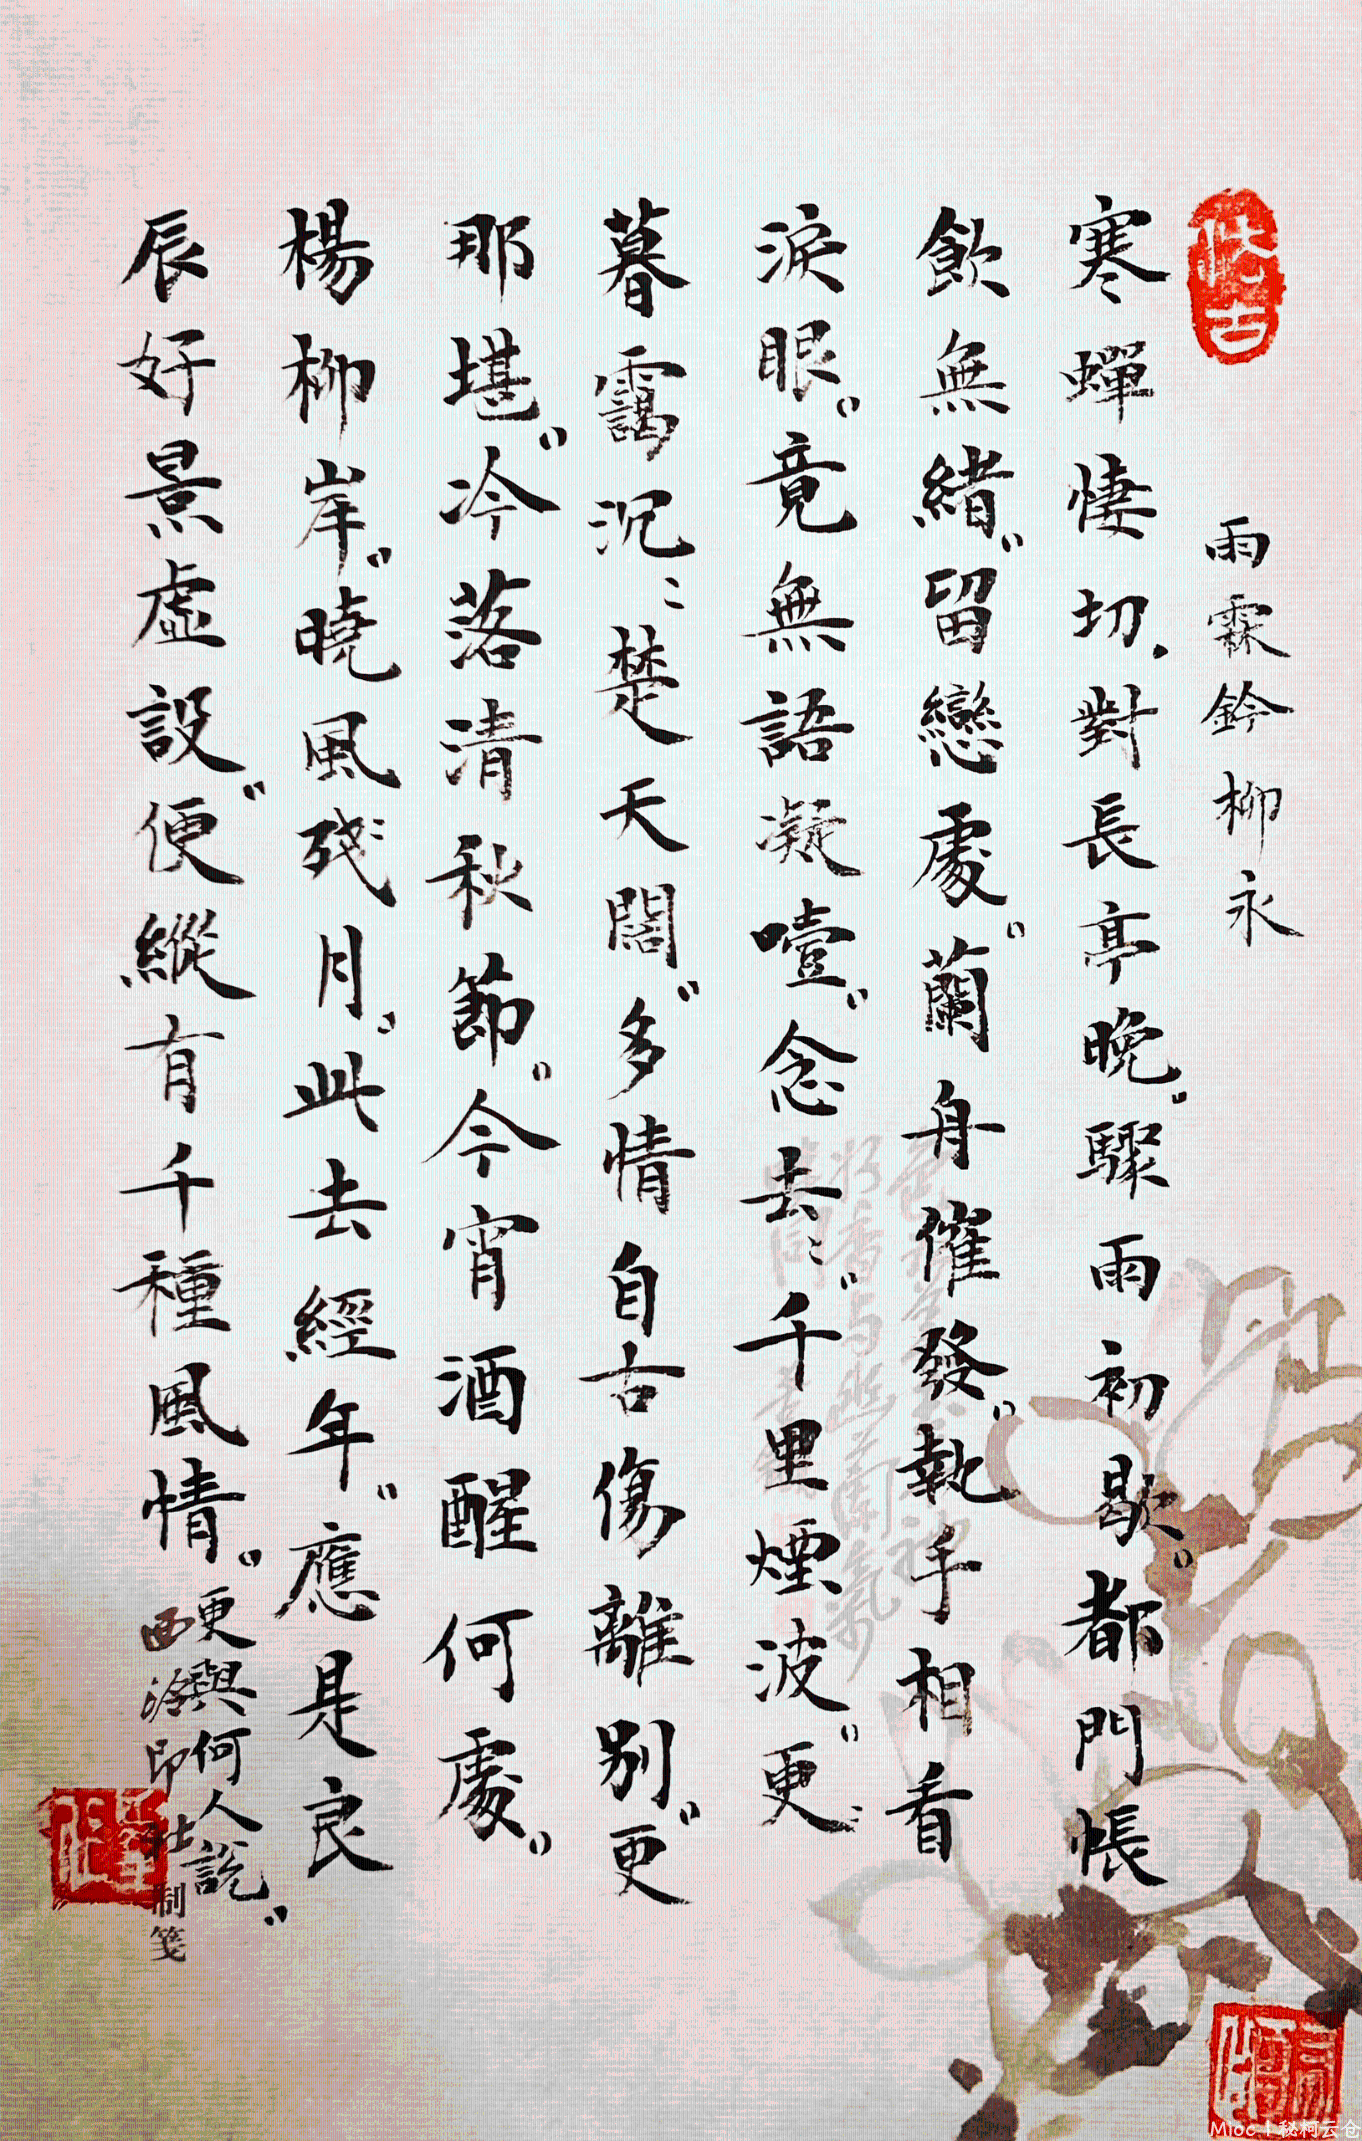 雨霖鈴柳永
寒蟬悽切，對長亭晚。驟雨初歇。都門帳
飲無緒。留戀處。蘭舟催發。執手相看
淚眼。竟無語凝噎。念去〻。千里煙波。更
暮靄沉〻楚天闊。多情自古傷離別。更
那堪。冷落清秋節。今宵酒醒何處。
楊柳岸。曉風殘月。此去經年。應是良
辰好景虛設。便縱有千種風情。更與何人說。
西泠印社制箋
Mioc丨秘柯云仓